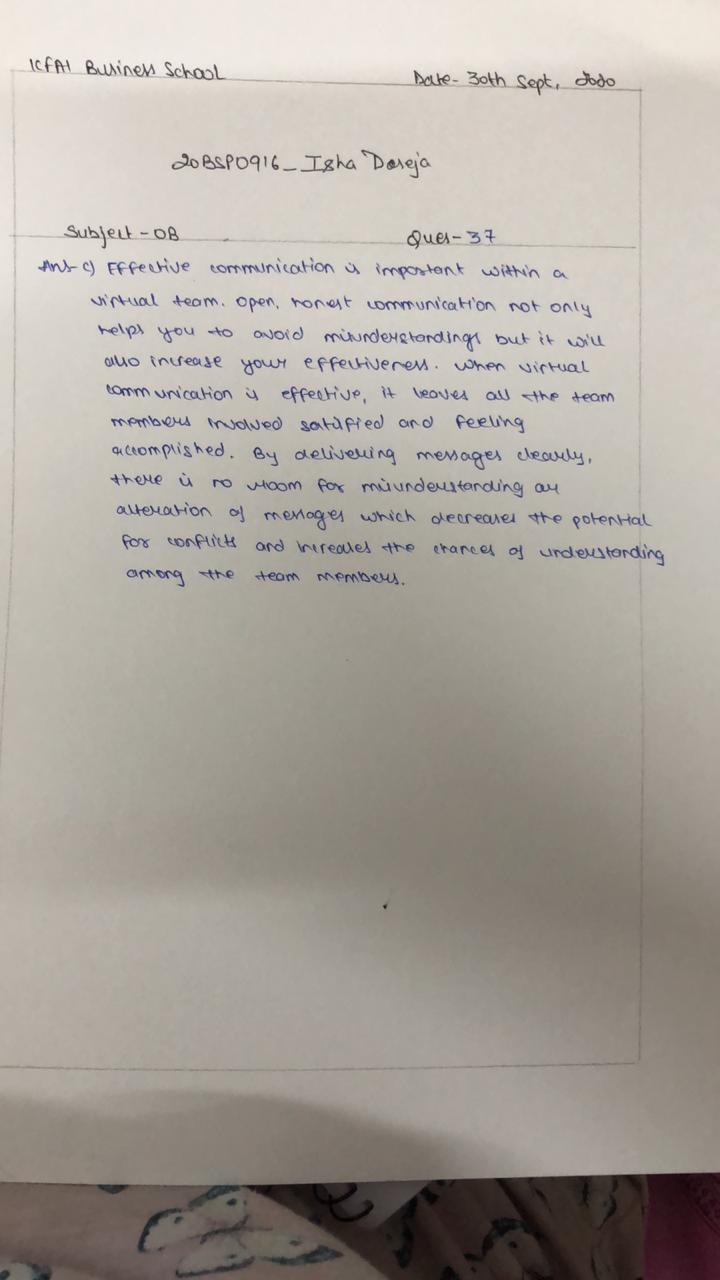 ICFAI Business School
Date- 30th Sept, 2020
20BSP0916_Isha Dareja
Subject-OB
Ques-37
Ans- c) Effective communication is important within a
virtual team. Open, honest communication not only
helps you to avoid misunderstandings but it will
also increase your effectiveness. When virtual
communication is effective, it leaves all the team
members involved satisfied and feeling
accomplished. By delivering messages clearly,
there is no room for misunderstanding or
alteration of messages which decreases the potential
for conflicts and increases the chances of understanding
among the team members.